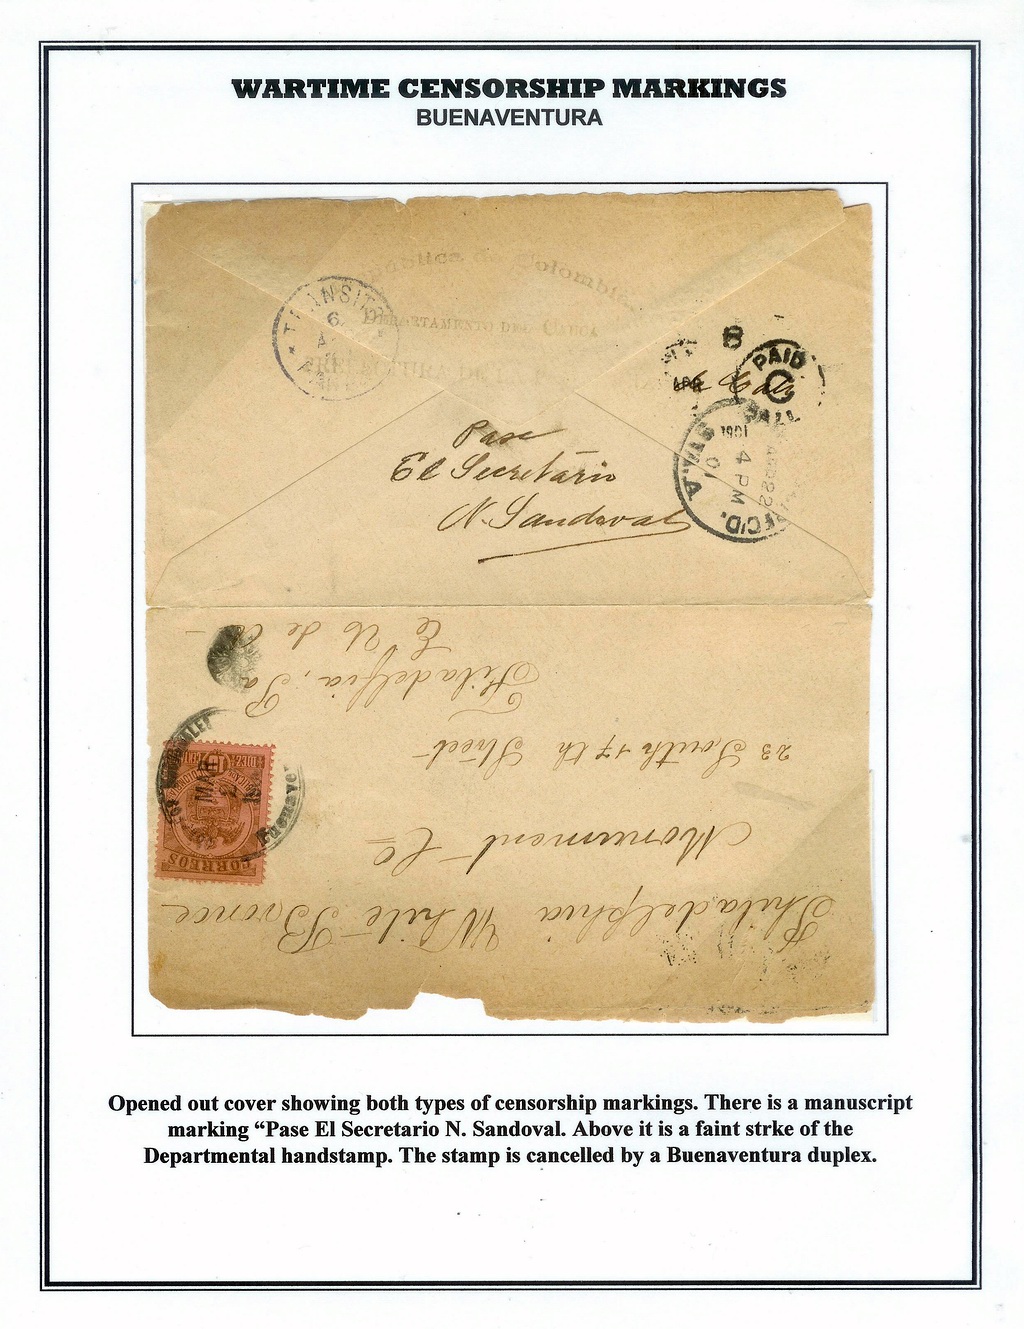 WARTIME CENSORSHIP MARKINGS
BUENAVENTURA
República de Colombia
DEPARTAMENTO DEL CAUCA
PREFECTURA DE
TRANSITO
6
B
PAID
C
APR
1901
4 PM
REC'D.
Pase
El Secretario
N. Sandoval
Philadelphia White Bronce
Monument Co
23 South 17th Street
Filadelfia, Pa
CORREOS
DIEZ
MAR
2
Buenave
Opened out cover showing both types of censorship markings. There is a manuscript
marking “Pase El Secretario N. Sandoval. Above it is a faint strke of the
Departmental handstamp. The stamp is cancelled by a Buenaventura duplex.